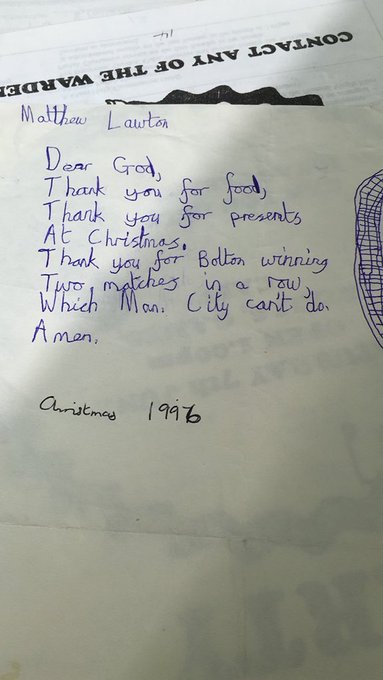 CONTACT ANY OF THE WARDE
Matthew Lawton
Dear God,
Thank you for food,
Thank you for presents
At Christmas.
Thank you for Bolton winning
Two matches in a row,
Which Man. City can't do.
Amen.
Christmas 1996